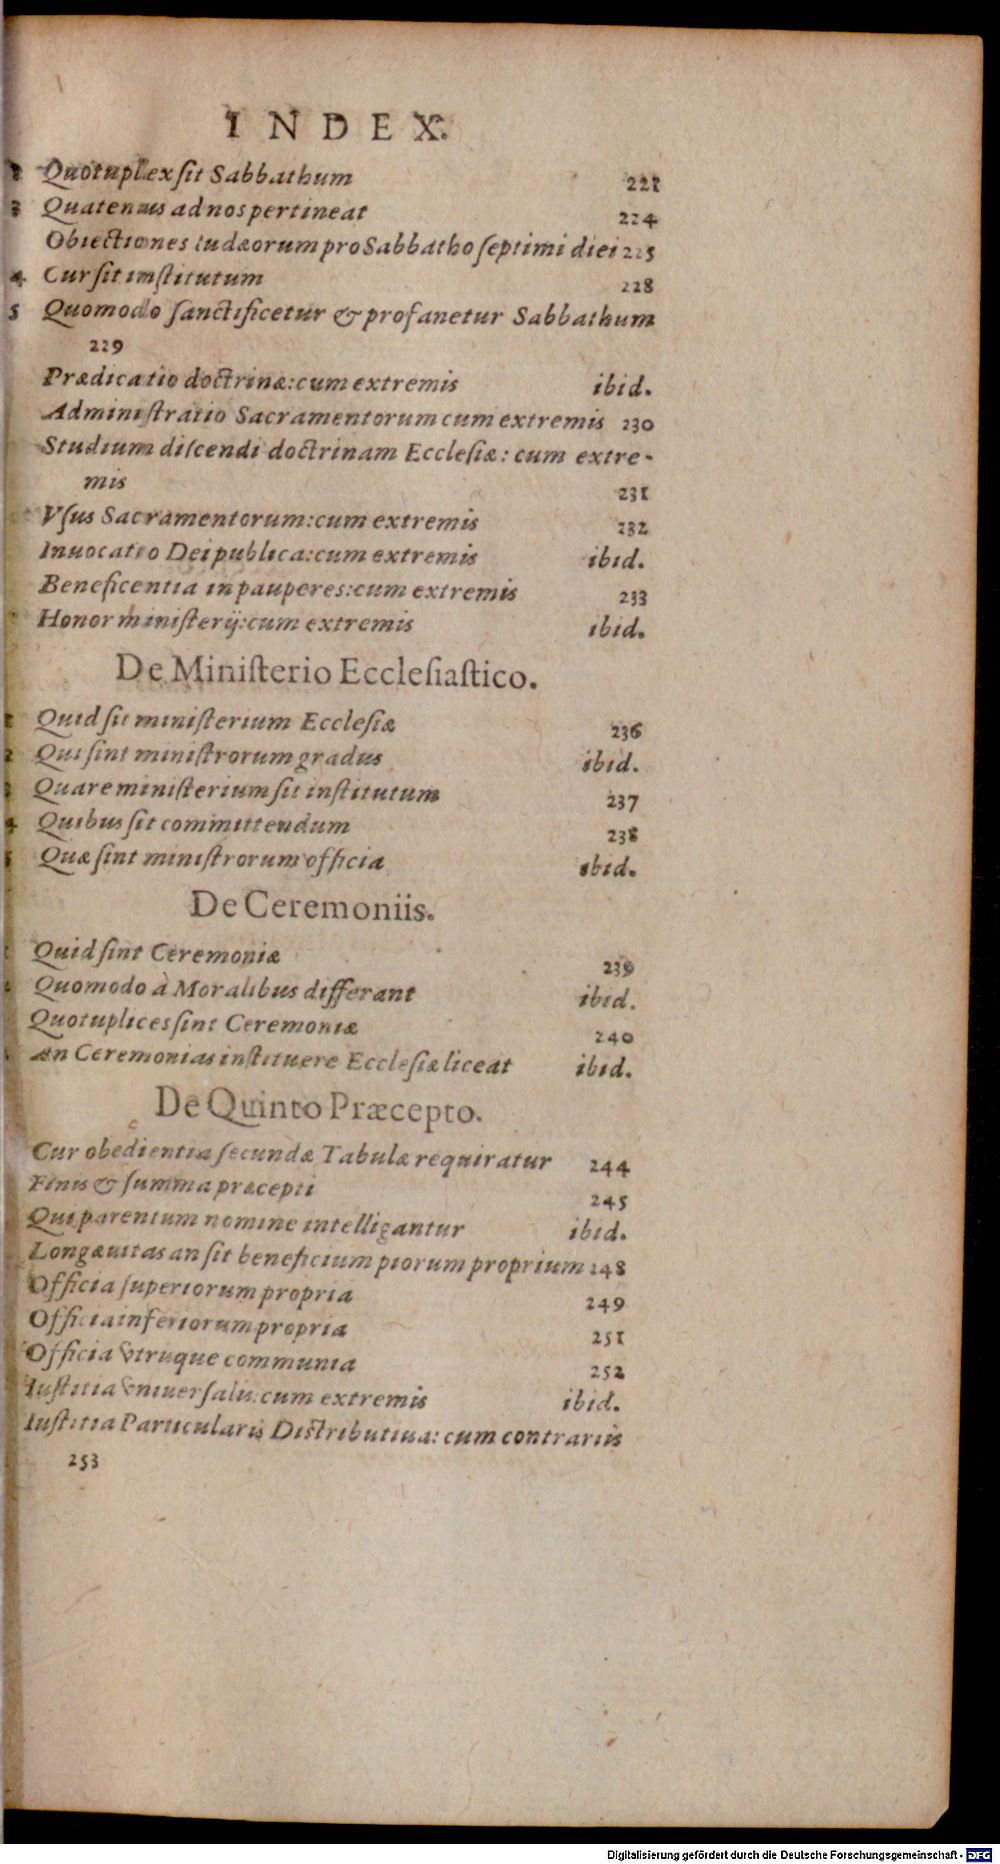 INDEX.
2 Quotuplex ſit Sabbathum 221
3 Quatenus ad nos pertineat 224
Obiectiones Iudæorum pro Sabbatho ſeptimi diei 225
4 Cur ſit inſtitutum 228
5 Quomodo ſanctificetur & profanetur Sabbathum
229
Prædicatio doctrinæ: cum extremis ibid.
Adminiſtratio Sacramentorum cum extremis 230
Studium diſcendi doctrinam Eccleſiæ: cum extre-
mis 231
Vſus Sacramentorum: cum extremis 232
Inuocatio Dei publica: cum extremis ibid.
Beneficentia in pauperes: cum extremis 233
Honor miniſterij: cum extremis ibid.
De Miniſterio Eccleſiaſtico.
1 Quid ſit miniſterium Eccleſiæ 236
2 Qui ſint miniſtrorum gradus ibid.
3 Quare miniſterium ſit inſtitutum 237
4 Quibus ſit committendum 238
5 Quæ ſint miniſtrorum officia ibid.
De Ceremoniis.
Quid ſint Ceremoniæ 239
Quomodo à Moralibus differant ibid.
Quotuplices ſint Ceremoniæ 240
An Ceremonias inſtituere Eccleſiæ liceat ibid.
De Quinto Præcepto.
Cur obedientia ſecundæ Tabulæ requiratur 244
Finis & ſumma præcepti 245
Qui parentum nomine intelligantur ibid.
Longæuitas an ſit beneficium piorum proprium 248
Officia ſuperiorum propria 249
Officia inferiorum propria 251
Officia vtrique communia 252
Iuſtitia vniuerſalis: cum extremis ibid.
Iuſtitia Particularis Diſtributiua: cum contrariis
253
Digitalisierung gefördert durch die Deutsche Forschungsgemeinschaft - DFG